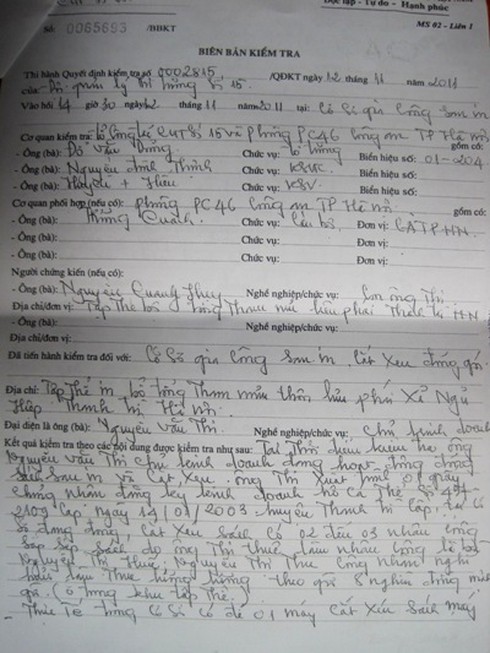 Độc lập - Tự do - Hạnh phúc
MS 02 - Liên 1
Số: 0065693 /BBKT
BIÊN BẢN KIỂM TRA
Thi hành Quyết định kiểm tra số 0002815 /QĐKT ngày 12 tháng 11 năm 2011
của: Đội quản lý thị trường số 15.
Vào hồi 14 giờ 30 ngày 12 tháng 11 năm 2011 tại: Cơ sở gia công sau in
Cơ quan kiểm tra: Tổ công tác QLTT số 15 và phòng PC46 Công an TP Hà Nội gồm có:
- Ông (bà): Đỗ Văn Dũng Chức vụ: Tổ trưởng Biển hiệu số: 01-204
- Ông (bà): Nguyễn Đình Thịnh Chức vụ: KSV Biển hiệu số:
- Ông (bà): Chức vụ: KSV. Biển hiệu số:
Cơ quan phối hợp (nếu có): phòng PC46 Công an TP Hà Nội gồm có:
- Ông (bà): Chức vụ: Cán bộ, Đơn vị: CATPHN.
- Ông (bà): Chức vụ: Đơn vị:
- Ông (bà): Chức vụ: Đơn vị:
Người chứng kiến (nếu có):
- Ông (bà): Nguyễn Quang Huy Nghề nghiệp/chức vụ: Con ông Thi
Địa chỉ/đơn vị: Tập thể bộ tổng Tham mưu Thanh trì HN
- Ông (bà): Nghề nghiệp/chức vụ:
Địa chỉ/đơn vị:
Đã tiến hành kiểm tra đối với: Cơ sở gia công sau in, cắt xén đóng gói
Địa chỉ: Tập thể in bộ tổng Tham mưu thôn Xã Ngũ
Hiệp Thanh Trì Hà Nội.
Đại diện là ông (bà): Nguyễn Văn Thi Nghề nghiệp/chức vụ: Chủ kinh doanh
Kết quả kiểm tra theo các nội dung được kiểm tra như sau: Tại Thời điểm kiểm tra ông
Nguyễn Văn Thi chủ kinh doanh đang hoạt động
sách sau in và cắt xén. ông Thi Xuất trình 01 giấy
chứng nhận đăng ký kinh doanh hộ cá Thể số
2109 cấp ngày 14/01/2003 huyện Thanh trì cấp, tại cơ
sở đang đóng, cắt xén sách có 02 đến 03 nhân công
sắp xếp sách do ông Thi thuê làm nhân công là bà
Nguyễn Thị Huệ, Nguyễn Thị Thu công nhân nghỉ
hưu theo gói 8 nghìn đồng một
gói. (ở trong khu tập thể.)
- Thực Tế trong Cơ sở có để 01 máy cắt xén sách máy